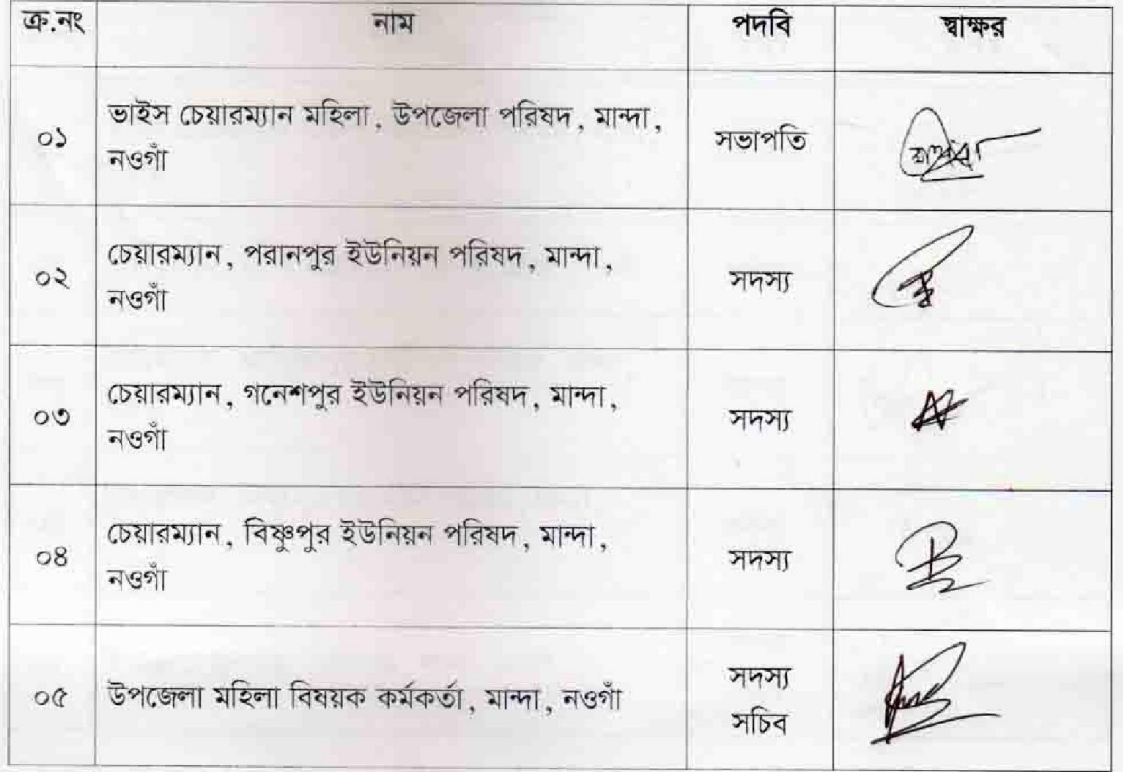 ক্র.নং নাম পদবি স্বাক্ষর
০১ ভাইস চেয়ারম্যান মহিলা, উপজেলা পরিষদ, মান্দা, সভাপতি
নওগাঁ
০২ চেয়ারম্যান, পরানপুর ইউনিয়ন পরিষদ, মান্দা, সদস্য
নওগাঁ
০৩ চেয়ারম্যান, গনেশপুর ইউনিয়ন পরিষদ, মান্দা, সদস্য
নওগাঁ
০৪ চেয়ারম্যান, বিষ্ণুপুর ইউনিয়ন পরিষদ, মান্দা, সদস্য
নওগাঁ
০৫ উপজেলা মহিলা বিষয়ক কর্মকর্তা, মান্দা, নওগাঁ সদস্য
সচিব